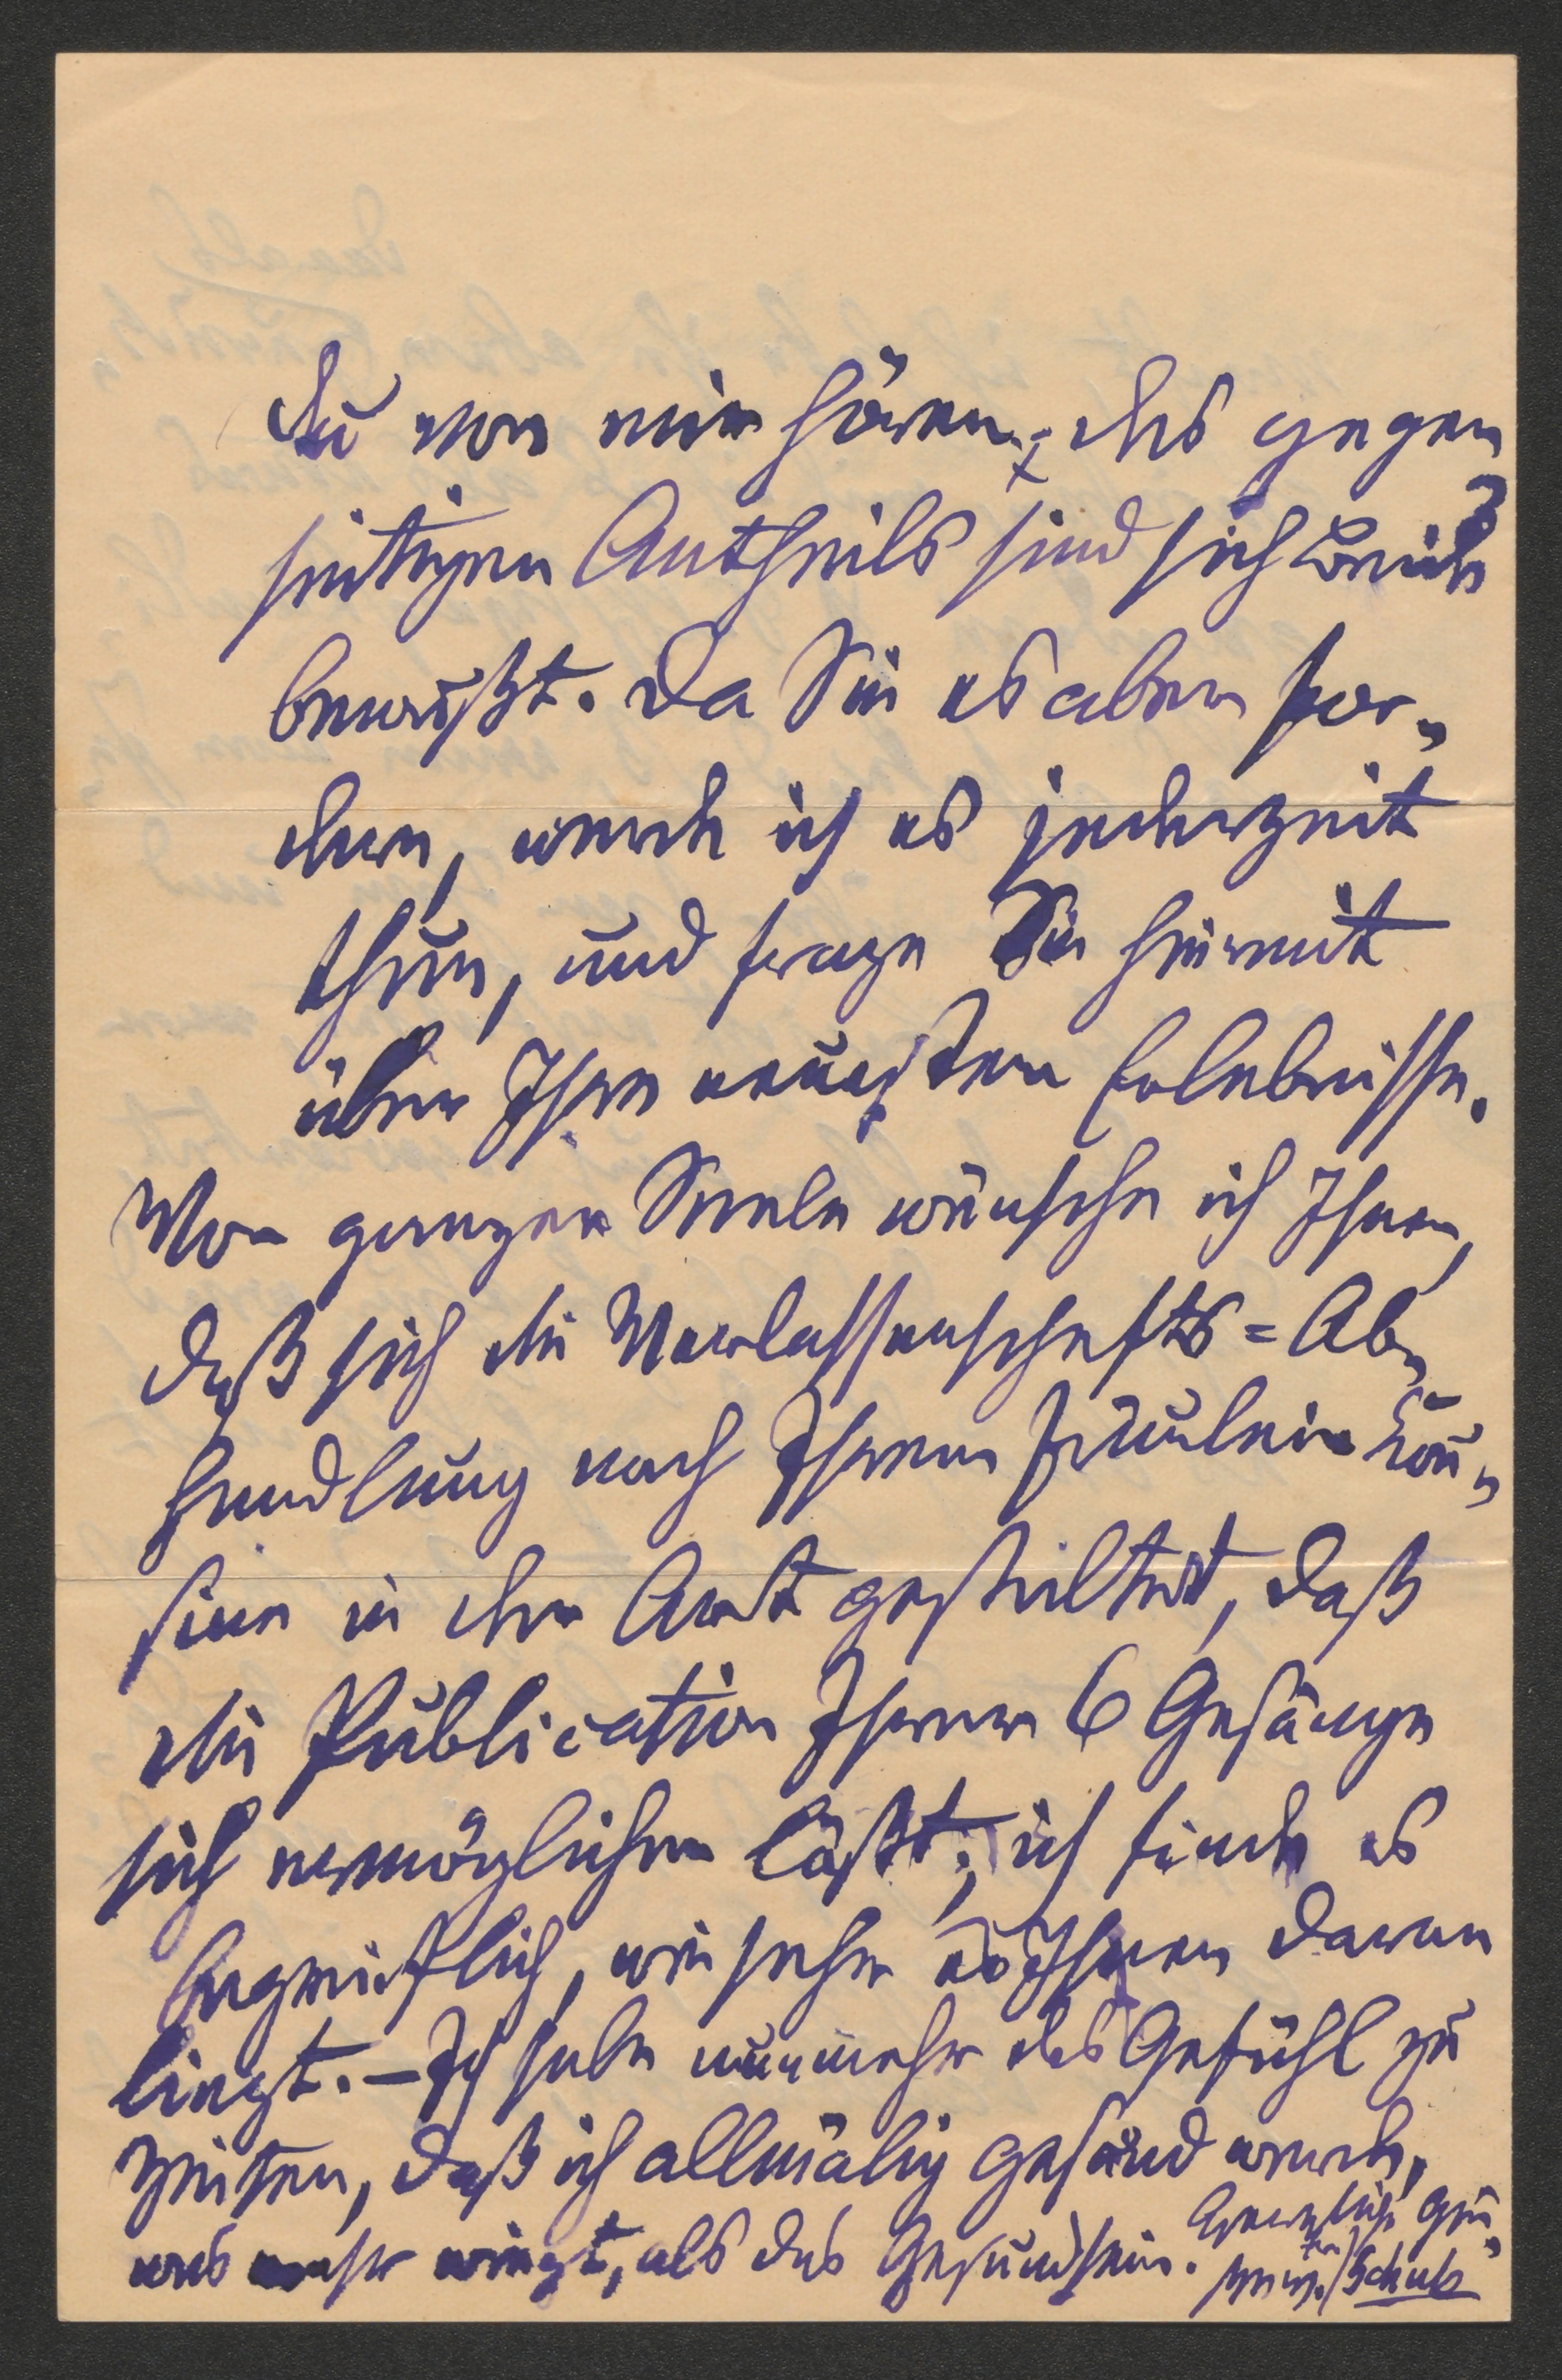 Sie von mir hören; des gegen
seitigen Antheils sind sich Beide
bewußt. Da Sie es aber for„
dern, werde ich es jederzeit
thun, und frage Sie hiermit
über Ihre neuesten Erlebnisse.
Von ganzer Seele wünsche ich Ihnen,
daß sich die Verlassenschafts=Ab„
handlung nach Ihrem Fräulein Cou„
sine in der Art gestaltet, daß
die Publication Ihrer 6 Gesänge
sich ermöglichen läßt; ich finde es
begreiflich, wie sehr es Ihnen daran
liegt. – Ich habe nunmehr das Gefühl zu
Zeiten, daß ich allmälig gesund werde,
was mehr wiegt, als das Gesundsein. Herzlich grü„
ßend Ihr Schub